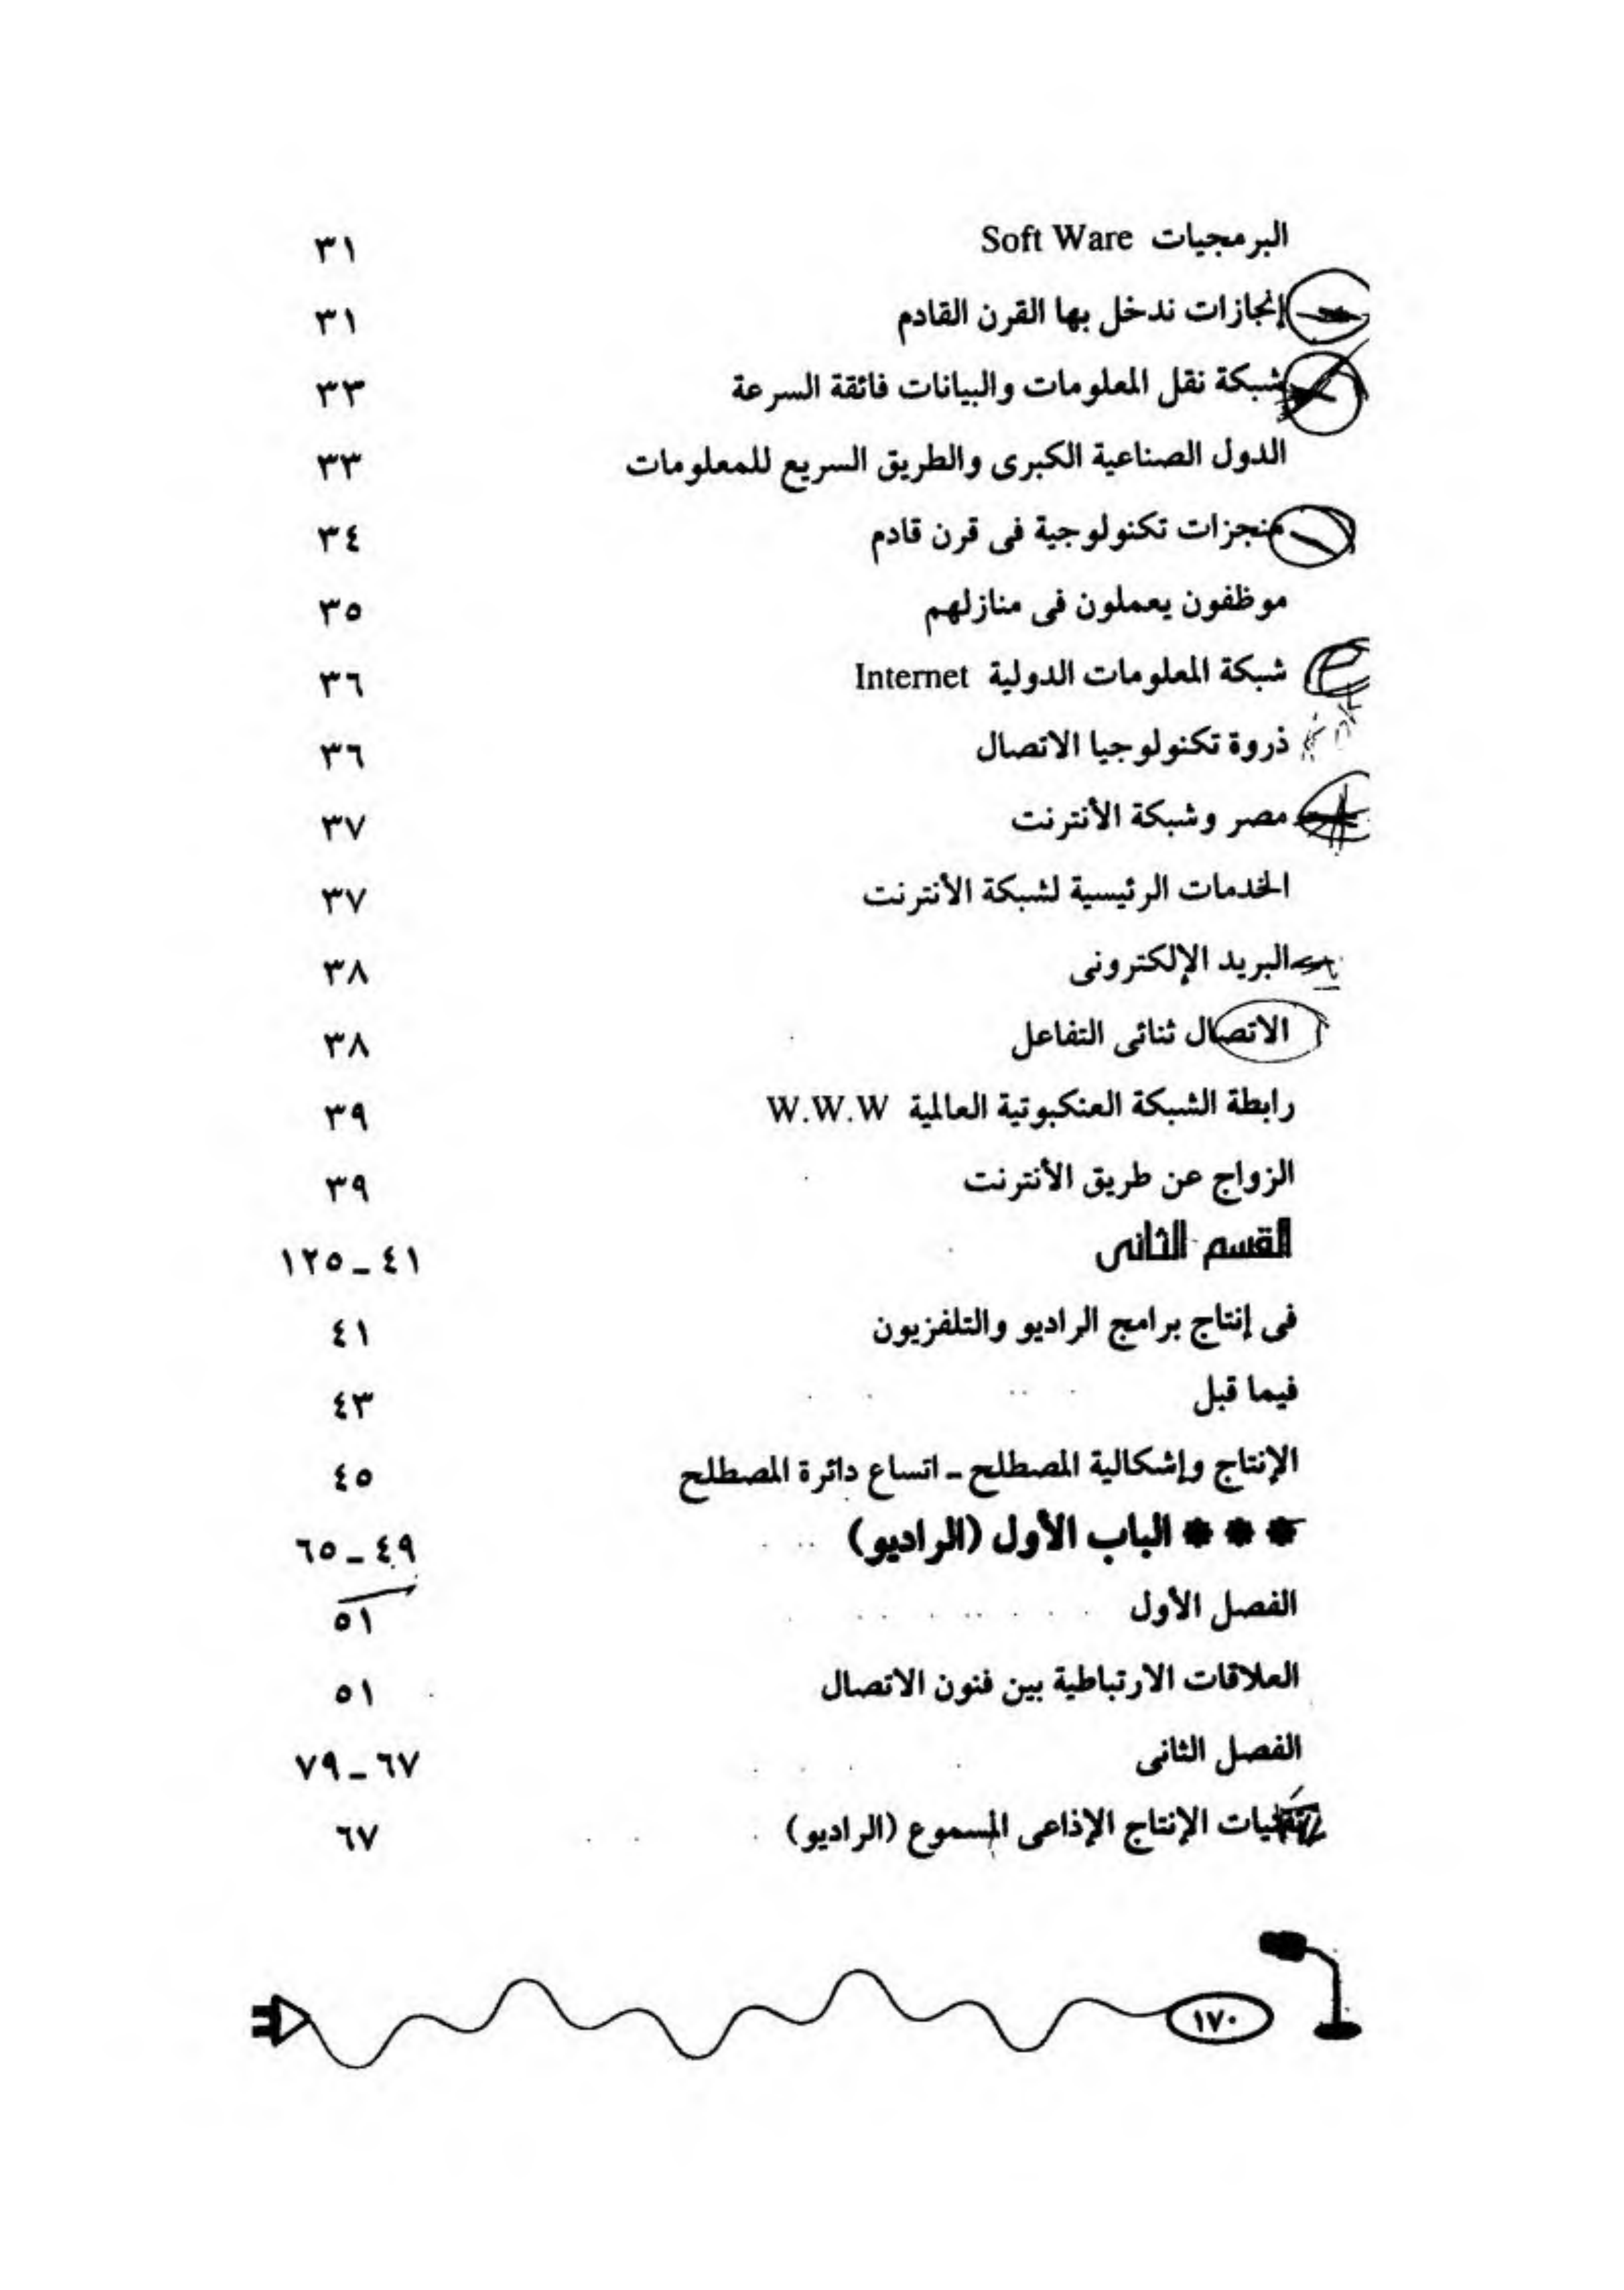 البرمجيات Soft Ware ٣١
إنجازات ندخل بها القرن القادم ٣١
شبكة نقل المعلومات والبيانات فائقة السرعة ٣٣
الدول الصناعية الكبرى والطريق السريع للمعلومات ٣٣
منجزات تكنولوجية فى قرن قادم ٣٤
موظفون يعملون فى منازلهم ٣٥
شبكة المعلومات الدولية Internet ٣٦
ذروة تكنولوجيا الاتصال ٣٦
مصر وشبكة الأنترنت ٣٧
الخدمات الرئيسية لشبكة الأنترنت ٣٧
البريد الإلكترونى ٣٨
الاتصال ثنائى التفاعل ٣٨
رابطة الشبكة العنكبوتية العالمية W.W.W ٣٩
الزواج عن طريق الأنترنت ٣٩
القسم الثانى ٤١ـ١٢٥
فى إنتاج برامج الراديو والتلفزيون ٤١
فيما قبل ٤٣
الإنتاج وإشكالية المصطلح ـ اتساع دائرة المصطلح ٤٥
*** الباب الأول (الراديو) ٤٩ـ٦٥
الفصل الأول ٥١
العلاقات الارتباطية بين فنون الاتصال ٥١
الفصل الثانى ٦٧ـ٧٩
تقنيات الإنتاج الإذاعى المسموع (الراديو) ٦٧
١٧٠